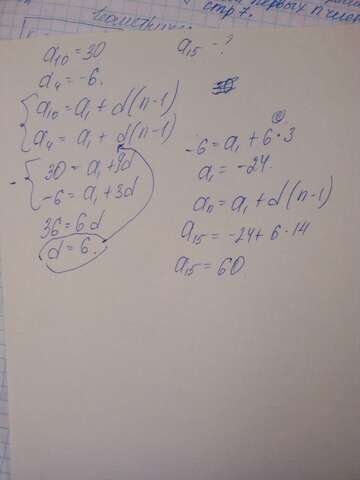 первых n
стр 7.
a₁₀ = 30
a₁₅ - ?
a₄ = -6.
a₁₀ = a₁ + d(n-1)
a₄ = a₁ + d(n-1)
30 = a₁ + 9d
-6 = a₁ + 3d
36 = 6d
d = 6.
-6 = a₁ + 6·3
a₁ = -24.
aₙ = a₁ + d(n-1)
a₁₅ = -24 + 6·14
a₁₅ = 60